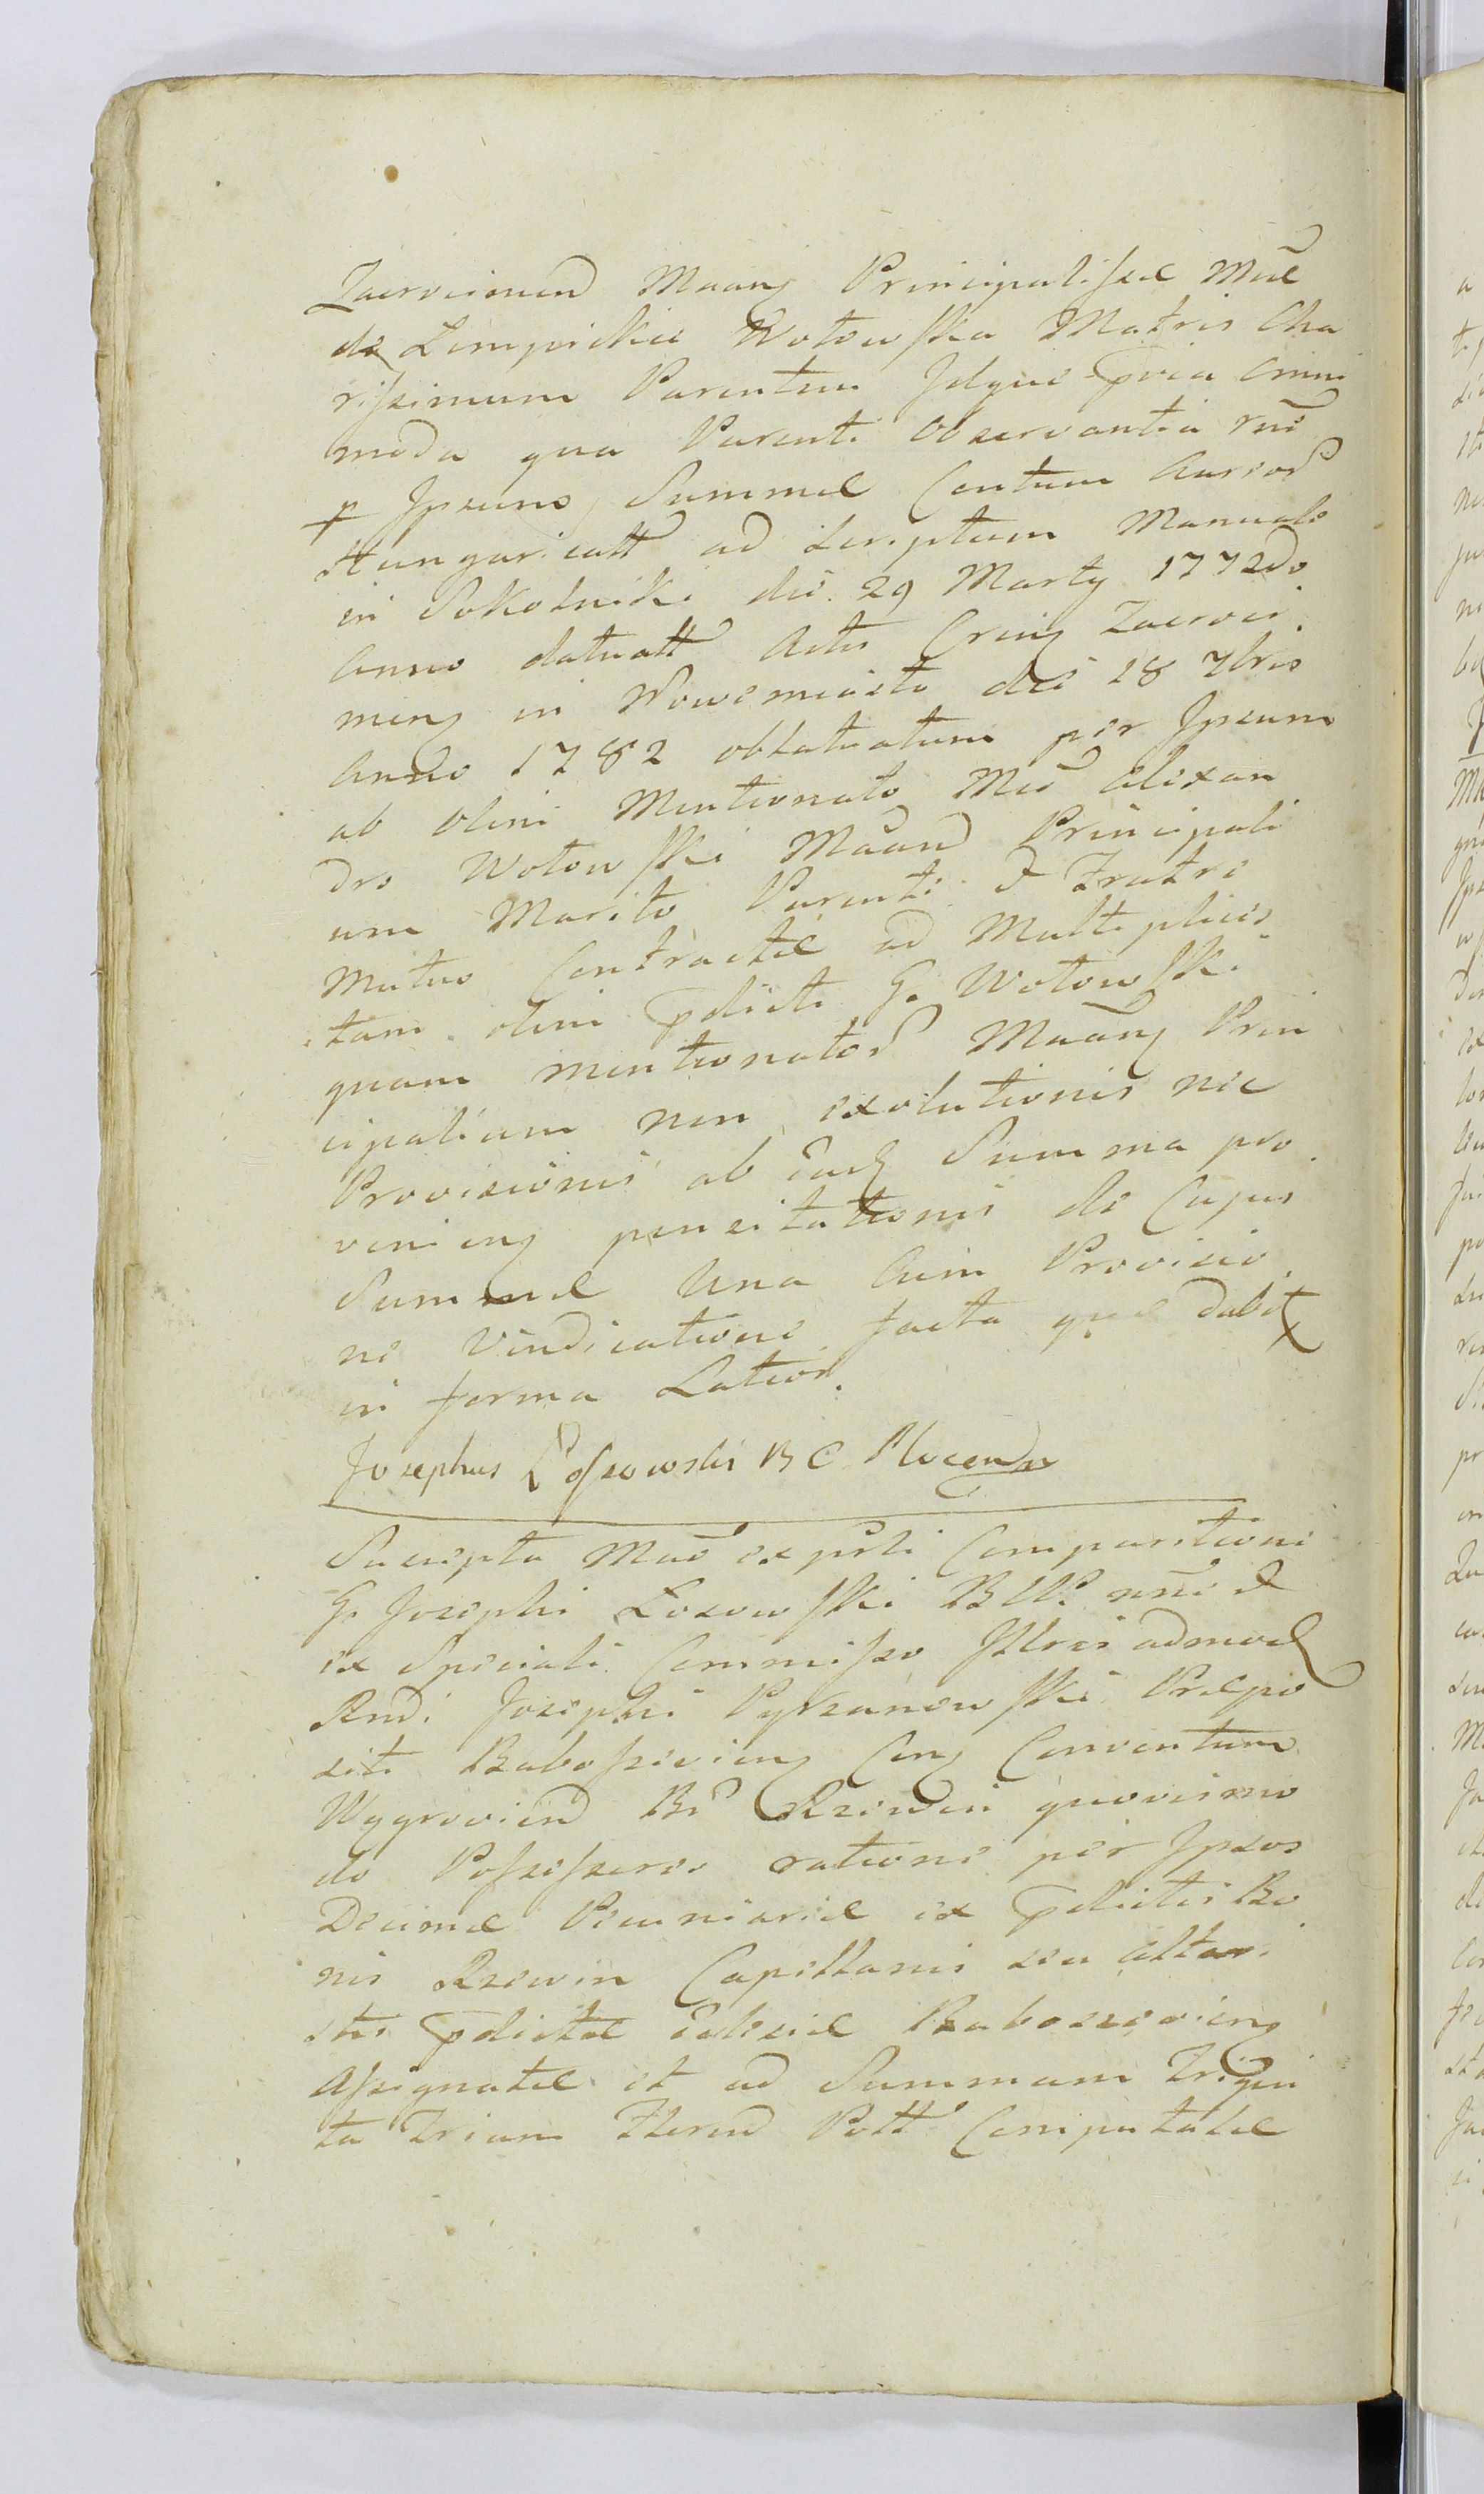 Zacrocimen Maanq Principalisae Mae
de Lempickie Wołowska Matris Cha
rissimum Parentem Idque Pria omni
moda qua Parenti Observantia rne
p Ipsum Summae Centum Aureor
Hungaricall ad Scriptum Manuale
in Sokolniki die 29 Marty 1772do
Anno datuall Actis Crinq Zacroci
menq in Nowemiasto die 18 7bris
Anno 1782 oblatuatum per Ipsum
ab olim Mentionato Mco Alexan
dro Wołowski Maand Principali
um Marito Parenti & Fratre
Mutuo Contractae ad Multiplices
tam olim Pdicti G. Wołowski
quam mentionator Maanq Prin
cipalium non exolutionis nec
Provisionis ab eadq Summa pro
venienq pensitationis de Cujus
Summae Una Cum Provisio
ne Vindicatione facta quae dabit
in forma Latior.
Josephus Łossowski B C Plocen
Suscepta Mac ex psti Comparitione
G. Josephi Łosowski B C P. nne &
ex Speciali Commisso Illris admod
Rndi Josephi Pyrzanowski Praepo
siti Babossevienq Conq Conventum
Wygrovien Br Rzewin quovismo
do Possessores ratione per Ipsos
Decimae Pecuniariae ex Pdictis Bo
nis Rzewin Capellanis seu Altari
stis Pdictae Eclesiae Baboszevienq
Assignatae et ad Summam Trigin
ta Trium Floren Poll Computatae